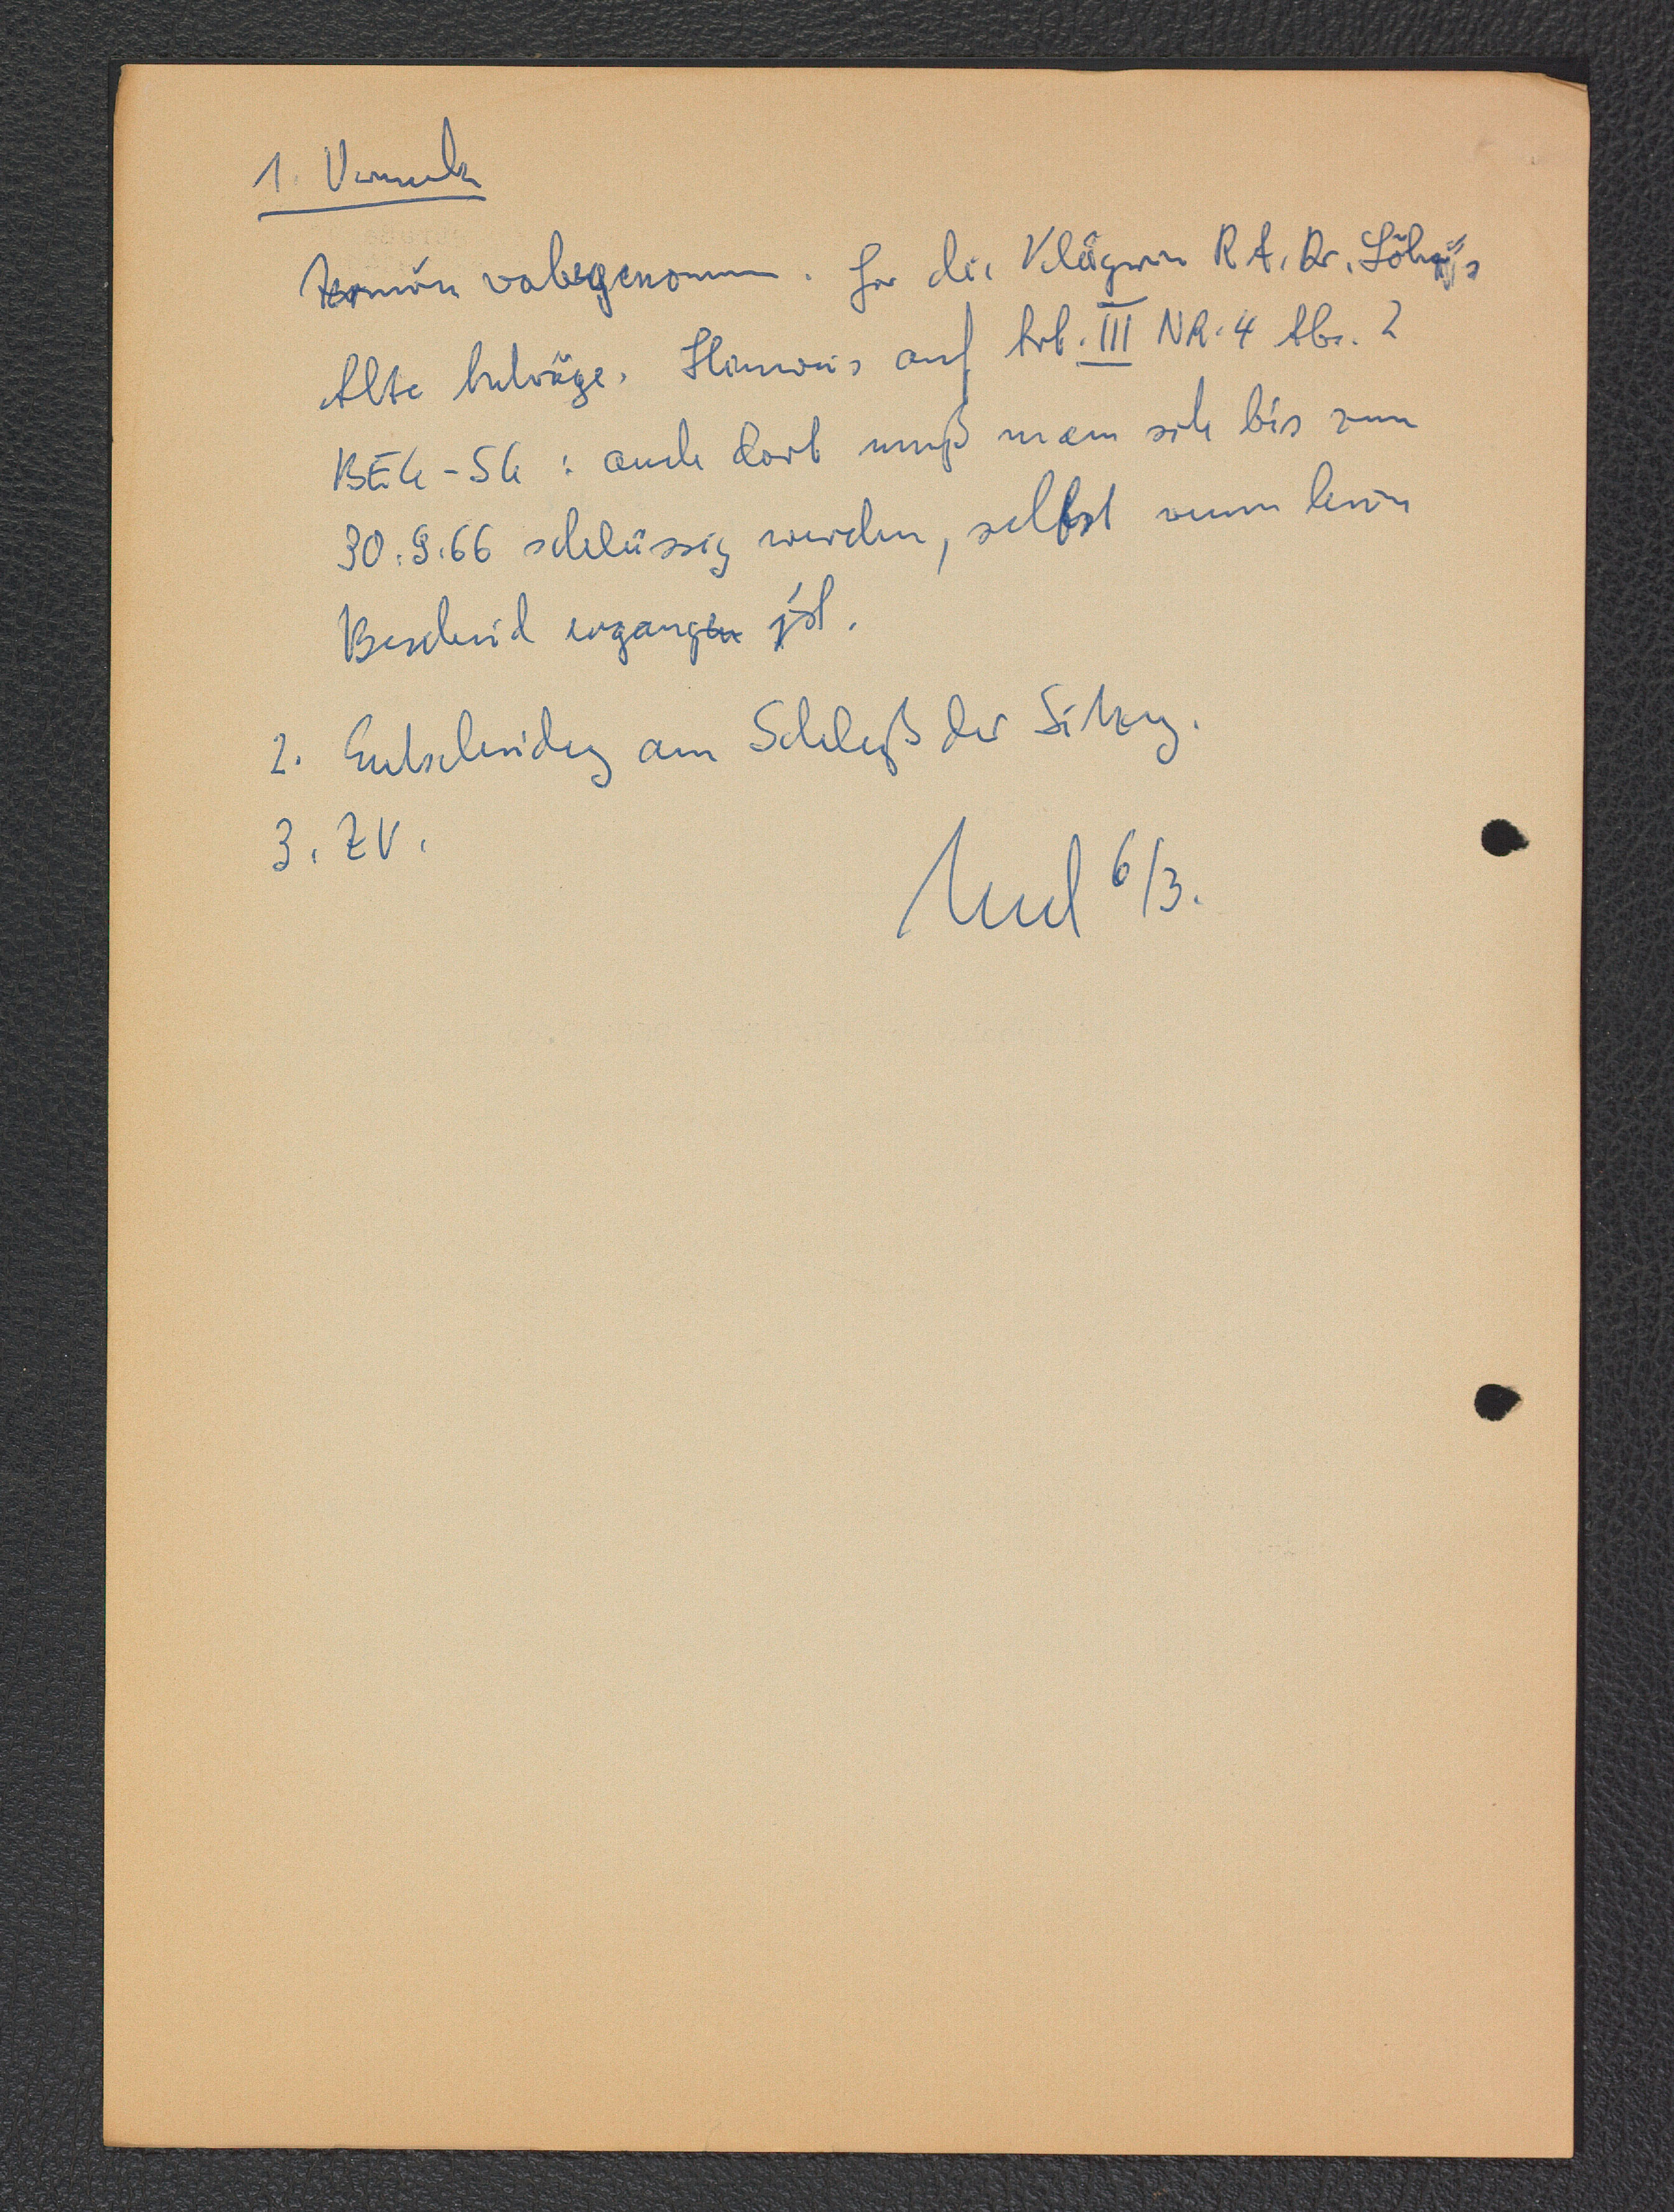 1. Vermerk
Termin wahrgenommen. Für die Klägerin RA. Dr.
Alte Anträge. Hinweis auf Art. III NR. 4 Abs. 2
BEG-SG: auch dort muß man sich bis zum
30.9.66 schlüssig werden, selbst wenn kein
Bescheid ergangen ist.
2. Entscheidung am Schluß der Sitzung.
3. ZV.
6/3.